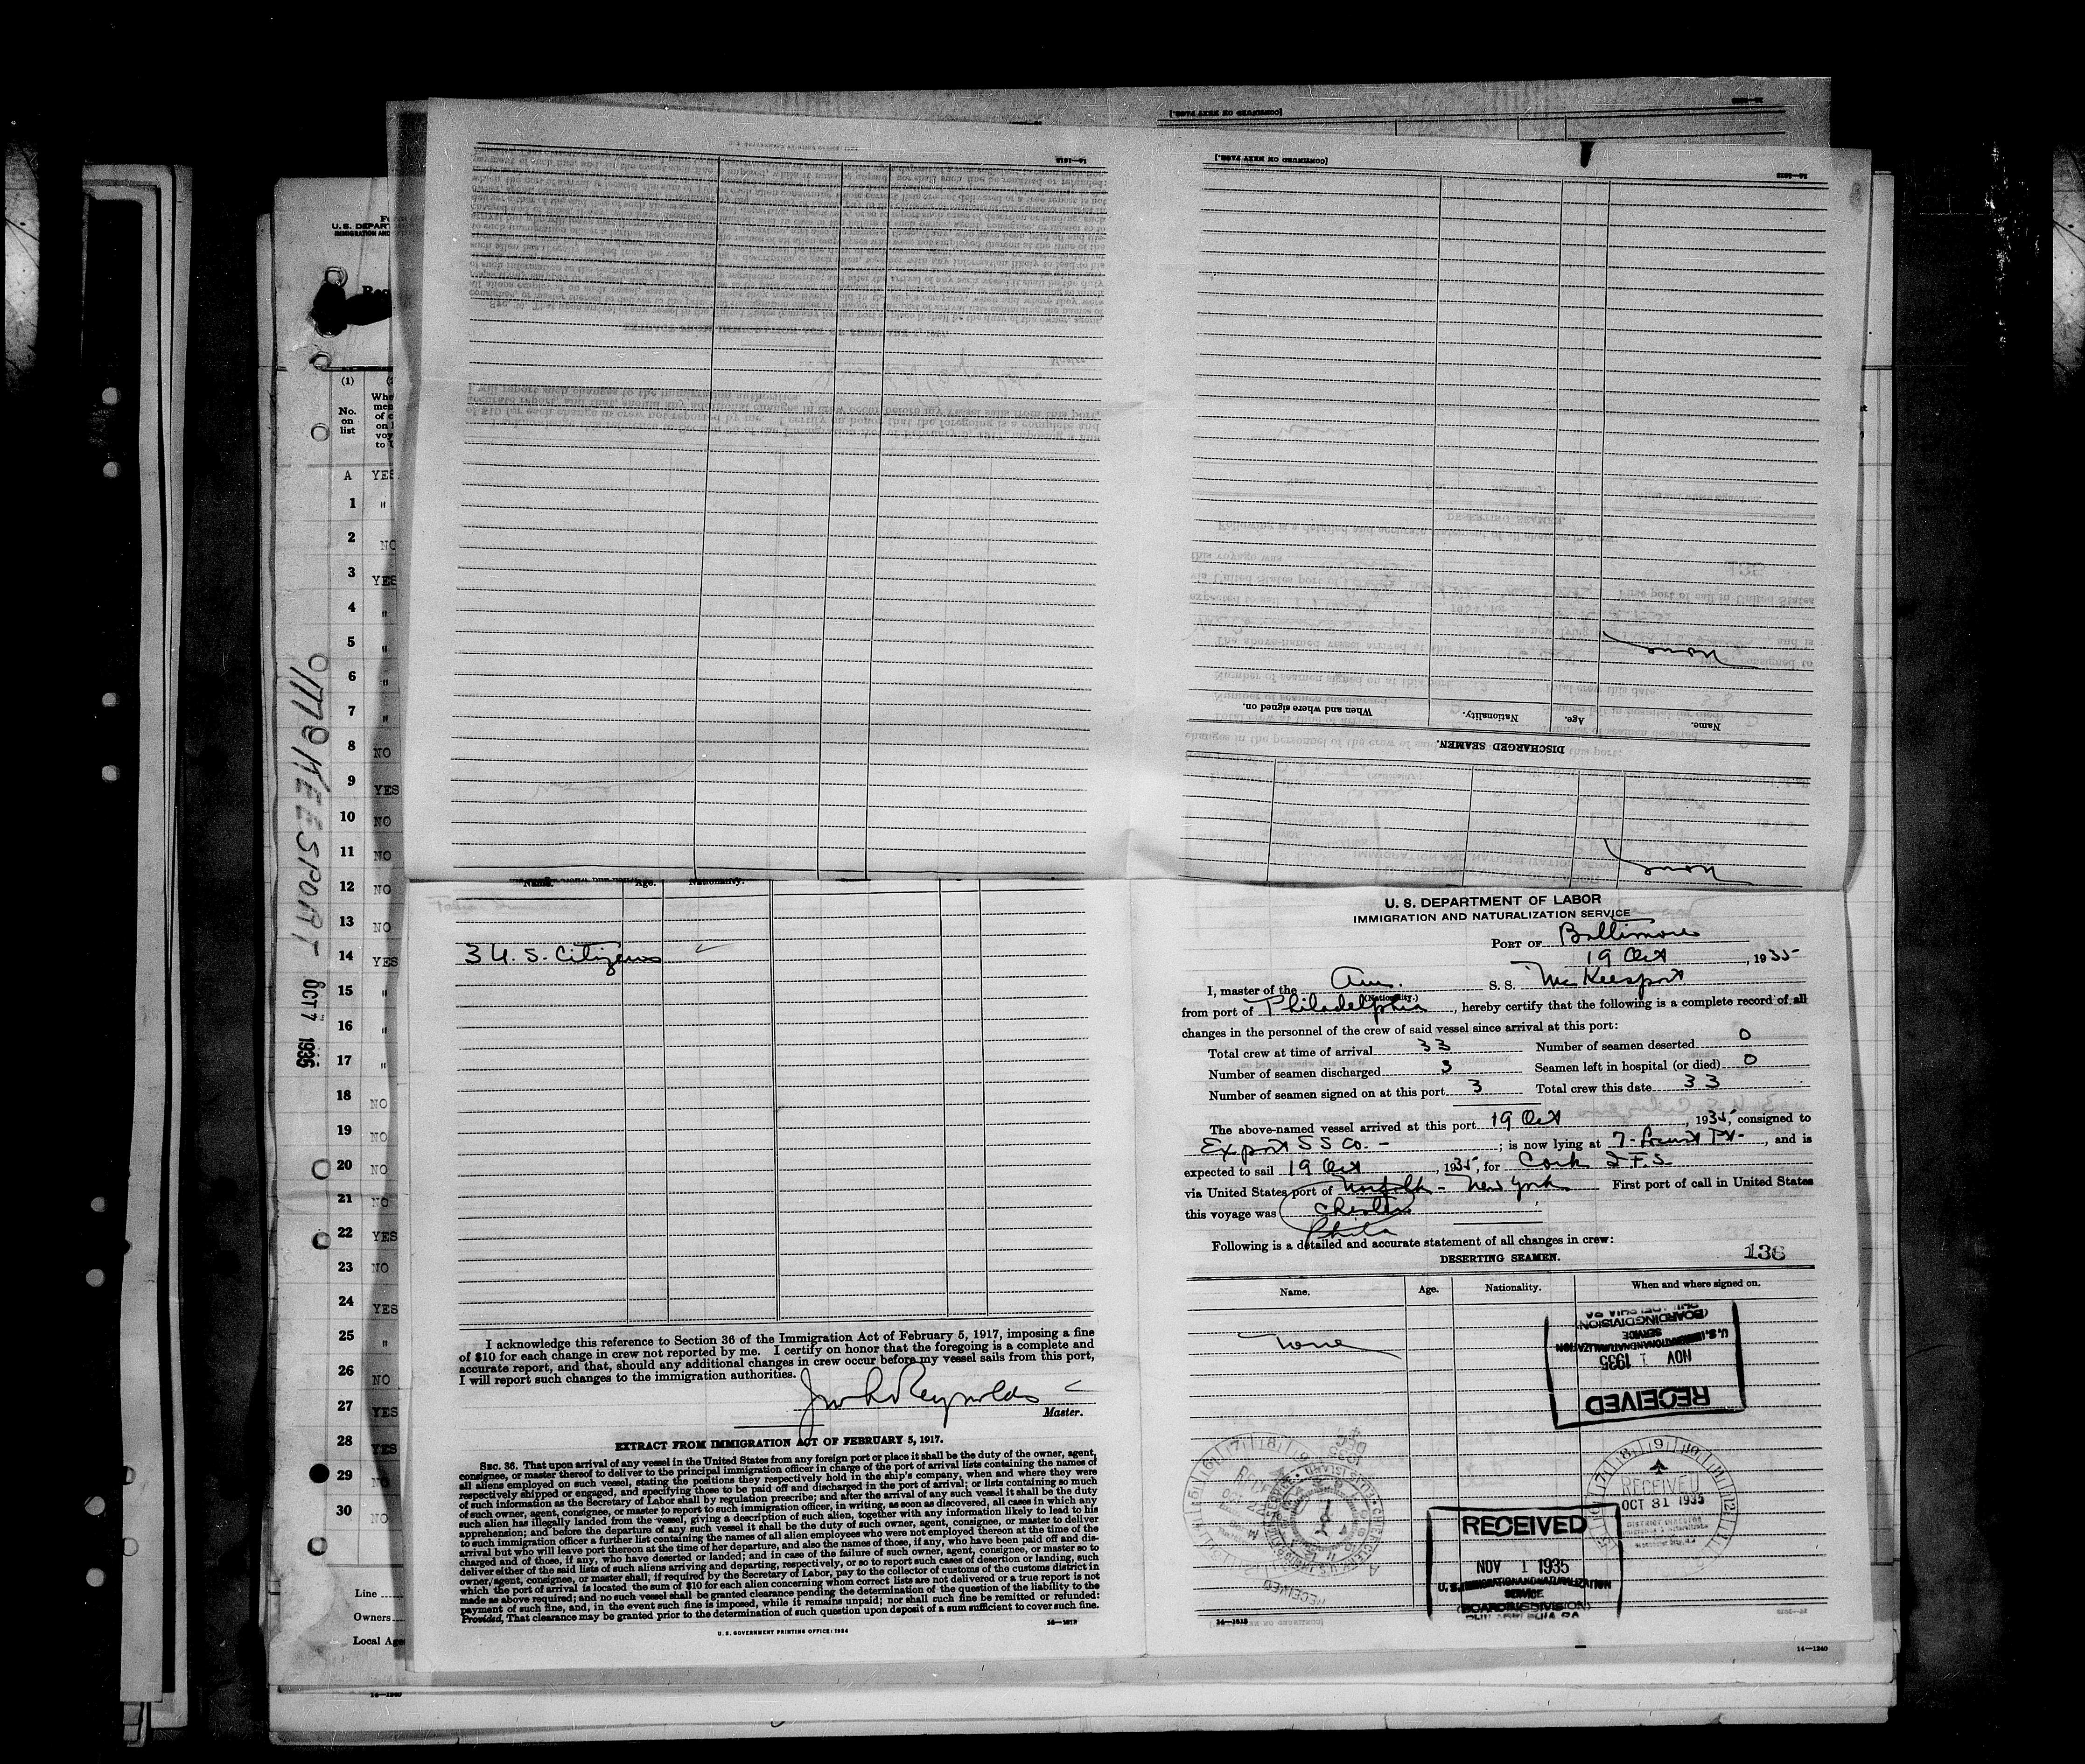 U. S. DEPARTMENT OF LABOR
IMMIGRATION AND NATURALIZATION SERVICE
PORT OF Baltimore
19 Oct, 1935
I, master of the Am. S. S. McKeesport
(Nationality.)
from port of Philadelphia, hereby certify that the following is a complete record of all
changes in the personnel of the crew of said vessel since arrival at this port:
Total crew at time of arrival 33 Number of seamen deserted 0
Number of seamen discharged 3 Seamen left in hospital (or died) 0
Number of seamen signed on at this port 3 Total crew this date 33
The above-named vessel arrived at this port 19 Oct, 1935, consigned to
Export S S Co. - ; is now lying at 7- Locust Pt-, and is
expected to sail 19 Oct, 1935, for Cork I.F.S.
via United States port of Norfolk - New York First port of call in United States
this voyage was Chester
Phila
Following is a detailed and accurate statement of all changes in crew:
DESERTING SEAMEN.
136
Name. Age. Nationality. When and where signed on.
None
RECEIVED
NOV 1 1935
U. S. IMMIGRATION AND NATURALIZATION
SERVICE
(BOARDING DIVISION)
PHILADELPHIA PA
RECEIVED
OCT 31 1935
RECEIVED
NOV 1 1935
U. S. IMMIGRATION AND NATURALIZATION
SERVICE
(BOARDING DIVISION)
PHILADELPHIA PA
14—1618
14—1240
[CONTINUED ON NEXT PAGE.]
DISCHARGED SEAMEN.
Name. Age. Nationality. When and where signed on.
None
None
Name. Age. Nationality.
3 U. S. Citizens
I acknowledge this reference to Section 36 of the Immigration Act of February 5, 1917, imposing a fine
of $10 for each change in crew not reported by me. I certify on honor that the foregoing is a complete and
accurate report, and that, should any additional changes in crew occur before my vessel sails from this port,
I will report such changes to the immigration authorities.
Reynolds
Master.
EXTRACT FROM IMMIGRATION ACT OF FEBRUARY 5, 1917.
SEC. 36. That upon arrival of any vessel in the United States from any foreign port or place it shall be the duty of the owner, agent,
consignee, or master thereof to deliver to the principal immigration officer in charge of the port of arrival lists containing the names of
all aliens employed on such vessel, stating the positions they respectively hold in the ship's company, when and where they were
respectively shipped or engaged, and specifying those to be paid off and discharged in the port of arrival; or lists containing so much
of such information as the Secretary of Labor shall by regulation prescribe; and after the arrival of any such vessel it shall be the duty
of such owner, agent, consignee, or master to report to such immigration officer, in writing, as soon as discovered, all cases in which any
such alien has illegally landed from the vessel, giving a description of such alien, together with any information likely to lead to his
apprehension; and before the departure of any such vessel it shall be the duty of such owner, agent, consignee, or master to deliver
to such immigration officer a further list containing the names of all alien employees who were not employed thereon at the time of the
arrival but who will leave port thereon at the time of her departure, and also the names of those, if any, who have been paid off and dis-
charged and of those, if any, who have deserted or landed; and in case of the failure of such owner, agent, consignee, or master so to
deliver either of the said lists of such aliens arriving and departing, respectively, or so to report such cases of desertion or landing, such
owner, agent, consignee, or master shall, if required by the Secretary of Labor, pay to the collector of customs of the customs district in
which the port of arrival is located the sum of $10 for each alien concerning whom correct lists are not delivered or a true report is not
made as above required; and no such vessel shall be granted clearance pending the determination of the question of the liability to the
payment of such fine, and, in the event such fine is imposed, while it remains unpaid; nor shall such fine be remitted or refunded:
Provided, That clearance may be granted prior to the determination of such question upon deposit of a sum sufficient to cover such fine.
U. S. GOVERNMENT PRINTING OFFICE: 1934
U. S. DEPART
IMMIGRATION AND
(1)
No.
on
list
A YES
1 "
2 NO
3 YES
4 "
5 "
6 "
7 "
8 NO
9 YES
10 NO
11 NO
12 NO
13 NO
14 YES
15 "
16 "
17 "
18 NO
19 NO
20 NO
21 NO
22 YES
23 NO
24 YES
25 "
26 NO
27 YES
28 YES
29 NO
30 NO
Line
Owners
Local Age
14—1240
McKEESPORT OCT 7 1935